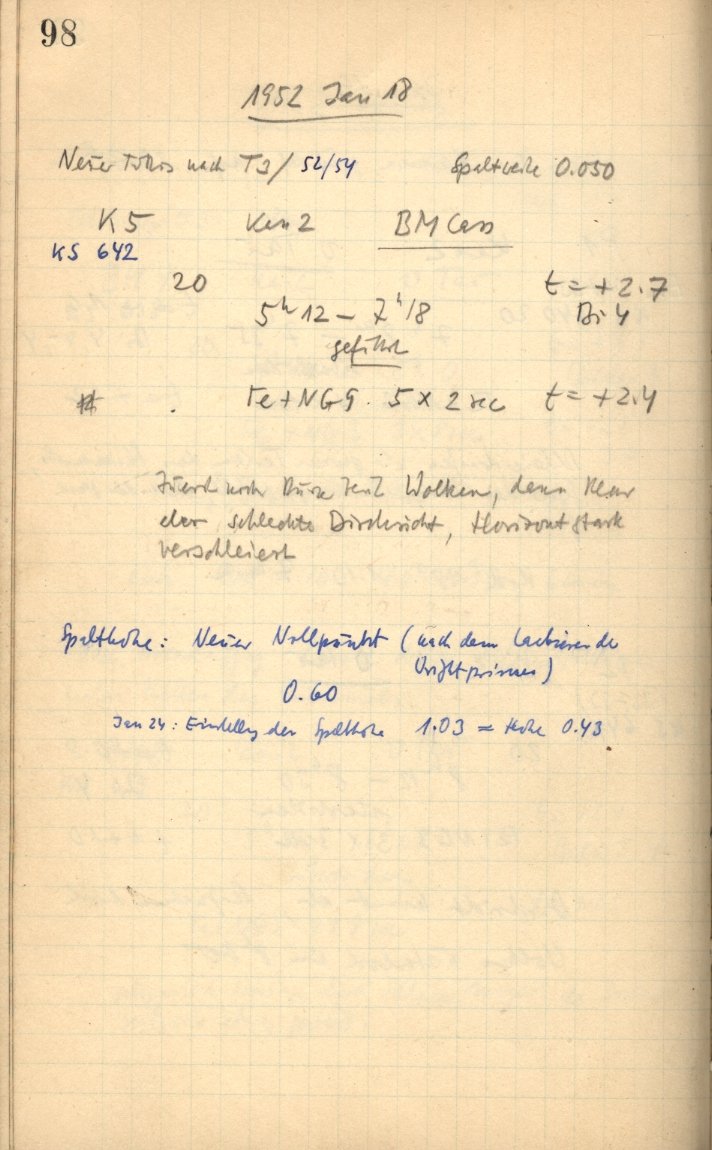 98
1952 Jan 18
Neuer Fokus nach T3/52/54 Spaltweite 0.050
K5 Kan 2 BM Cass
KS 642
20 t = +2.7
5h 12 – 7h 18 Bi 4
geführt
Fe + NG9. 5 x 2 sec t = +2.4
Zuerst noch kurze Zeit Wolken, dann klar
aber schlechte Durchsicht, Horizont stark
verschleiert
Spalthöhe: Neuer Nullpunkt (nach dem Lackieren der
0.60
Jan 24: Einstellung der Spalthöhe 1.03 = Höhe 0.43